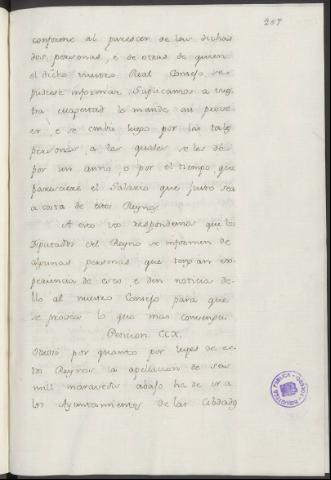 257
conforme al parescer de las dichas
dos personas, e de otras de quien
el dicho vuestro Real Consejo, se
pudiese informar. Suplicamos a vues
tra magestad lo mande asi prove
er, e se embie luego por las tales
personas, a las quales se les dé
por un anno, o por el tiempo que
paresciere el Salario que justo sea
a costa de estos Reynos.
A esto vos respondemos que los
Diputados del Reyno se informen de
algunas personas que tengan ex
periencia de esto, e den noticia de
llo al nuestro Consejo para que
se provea lo que mas convenga.
Peticion CCX.
Otrosi por quanto por leyes de es
tos Reynos la apelacion de seis
mill maravedis abajo ha de ir a
los Ayuntamientos de las Cibdades